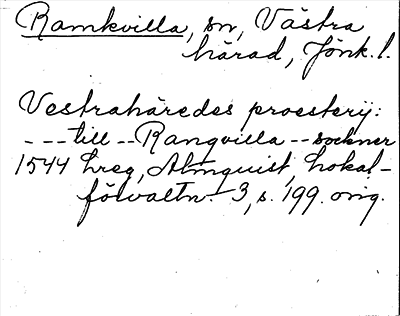 Ramkvilla, sn, Västra
härad, Jönk. l.
Vestrahäredes proesterij:
--- till -- Rangvilla -- sockner
1544 hreg, Almquist, Lokal-
förvaltn. 3, s. 199. orig.